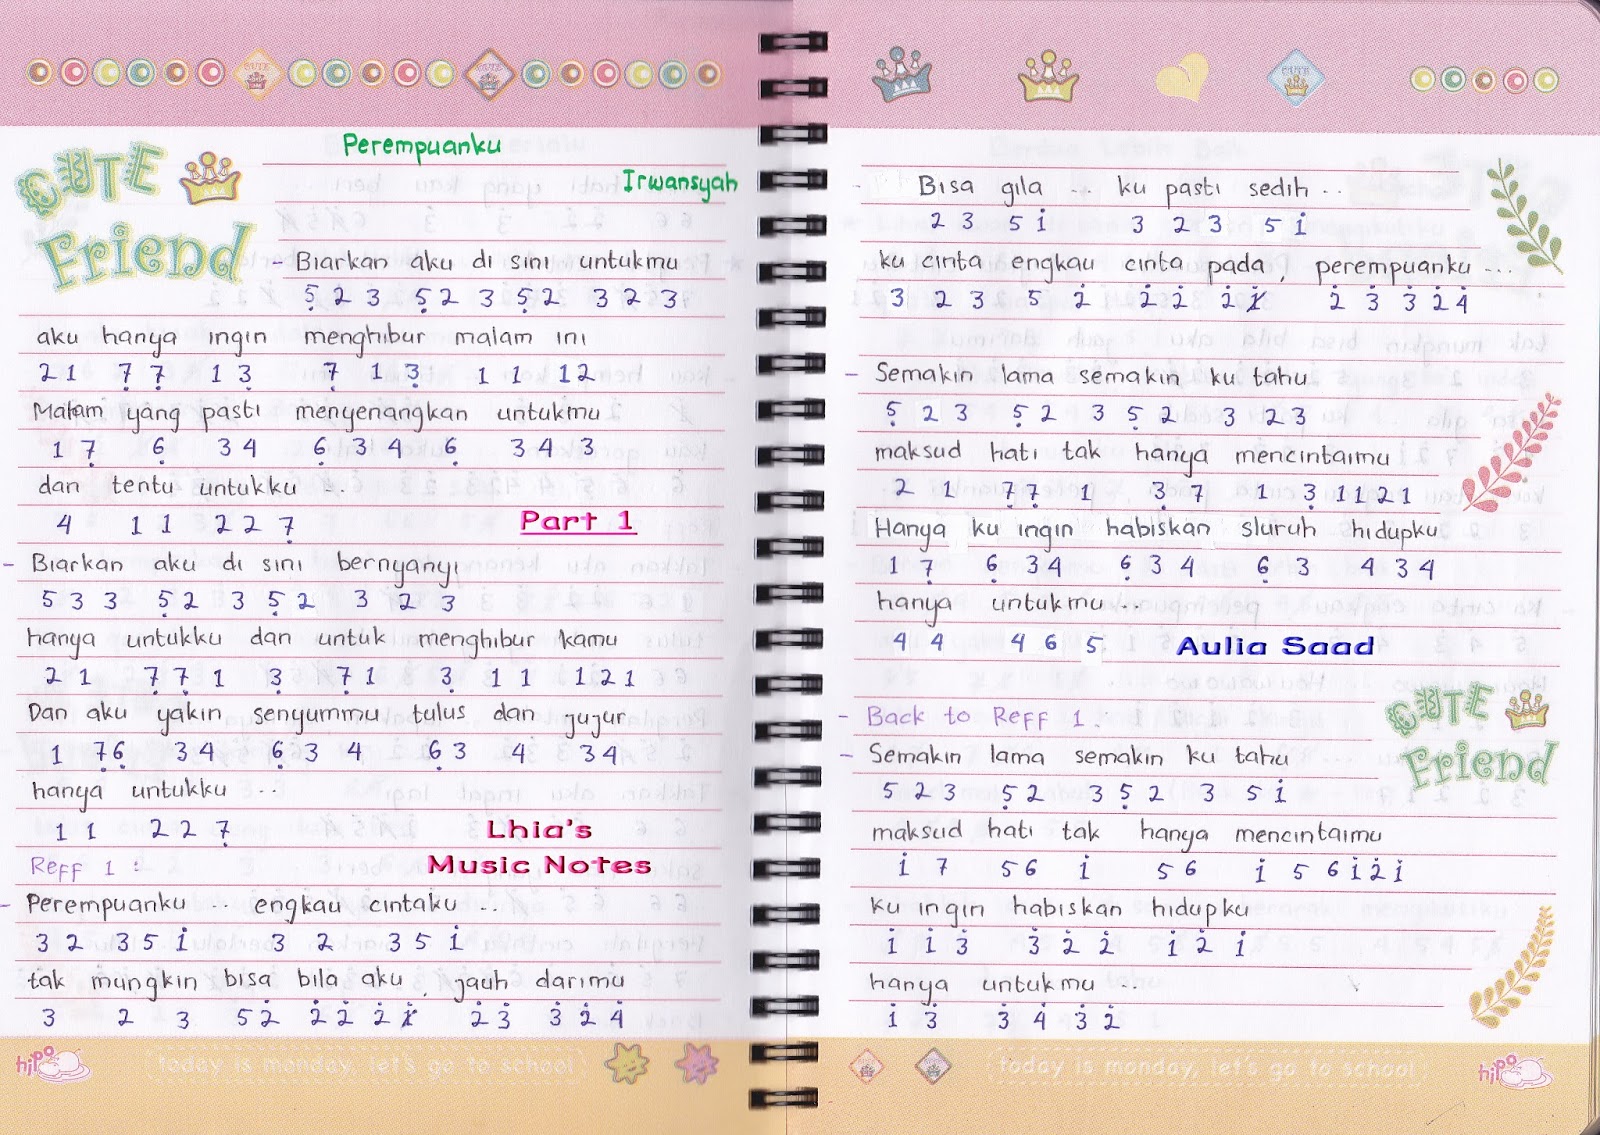 CUTE
Friend
Perempuanku
Irwansyah
- Biarkan aku di sini untukmu
5̣ 2 3 5̣ 2 3 5̣ 2 3 2 3
aku hanya ingin menghibur malam ini
2 1 7̣ 7̣ 1 3̣ 7̣ 1 3̣ 1 1 1 2
Malam yang pasti menyenangkan untukmu
1 7̣ 6̣ 3 4 6̣ 3 4 6̣ 3 4 3
dan tentu untukku ...
4 1 1 2 2 7̣
Part 1
- Biarkan aku di sini bernyanyi
5 3 3 5̣ 2 3 5̣ 2 3 2 3
hanya untukku dan untuk menghibur kamu
2 1 7̣ 7̣ 1 3̣ 7̣ 1 3̣ 1 1 1 2 1
Dan aku yakin senyummu tulus dan jujur
1 7̣ 6̣ 3 4 6̣ 3 4 6̣ 3 4 3 4
hanya untukku ...
1 1 2 2 7̣
Lhia's
Music Notes
Reff 1 :
- Perempuanku ... engkau cintaku ...
3 2 3 5 1̇ 3 2 3 5 1̇
tak mungkin bisa bila aku, jauh darimu
3 2 3 5 2̇ 2̇ 2̇ 2̇ 1̇ 2̇ 3̇ 3̇ 2̇ 4̇
hipo
today is monday, let's go to school
CUTE
- Bisa gila ... ku pasti sedih ...
2 3 5 1̇ 3 2 3 5 1̇
ku cinta engkau cinta pada, perempuanku ...
3 2 3 5 2̇ 2̇ 2̇ 2̇ 1̇ 2̇ 3̇ 3̇ 2̇ 4̇
- Semakin lama semakin ku tahu
5̣ 2 3 5̣ 2 3 5̣ 2 3 2 3
maksud hati tak hanya mencintaimu
2 1 7̣ 7̣ 1 3̣ 7̣ 1 3̣ 1 1 2 1
Hanya ku ingin habiskan sluruh hidupku
1 7̣ 6̣ 3 4 6̣ 3 4 6̣ 3 4 3 4
hanya untukmu ...
4 4 4 6 5
Aulia Saad
CUTE
Friend
- Back to Reff 1 :
- Semakin lama semakin ku tahu
5 2 3 5̣ 2 3 5̣ 2 3 5 1̇
maksud hati tak hanya mencintaimu
1̇ 7 5 6 1̇ 5 6 1̇ 5 6 1̇ 2̇ 1̇
ku ingin habiskan hidupku
1̇ 1̇ 3̇ 3̇ 2̇ 2̇ 1̇ 2̇ 1̇
hanya untukmu ...
1̇ 3̇ 3̇ 4̇ 3̇ 2̇
today is monday, let's go to school
hipo